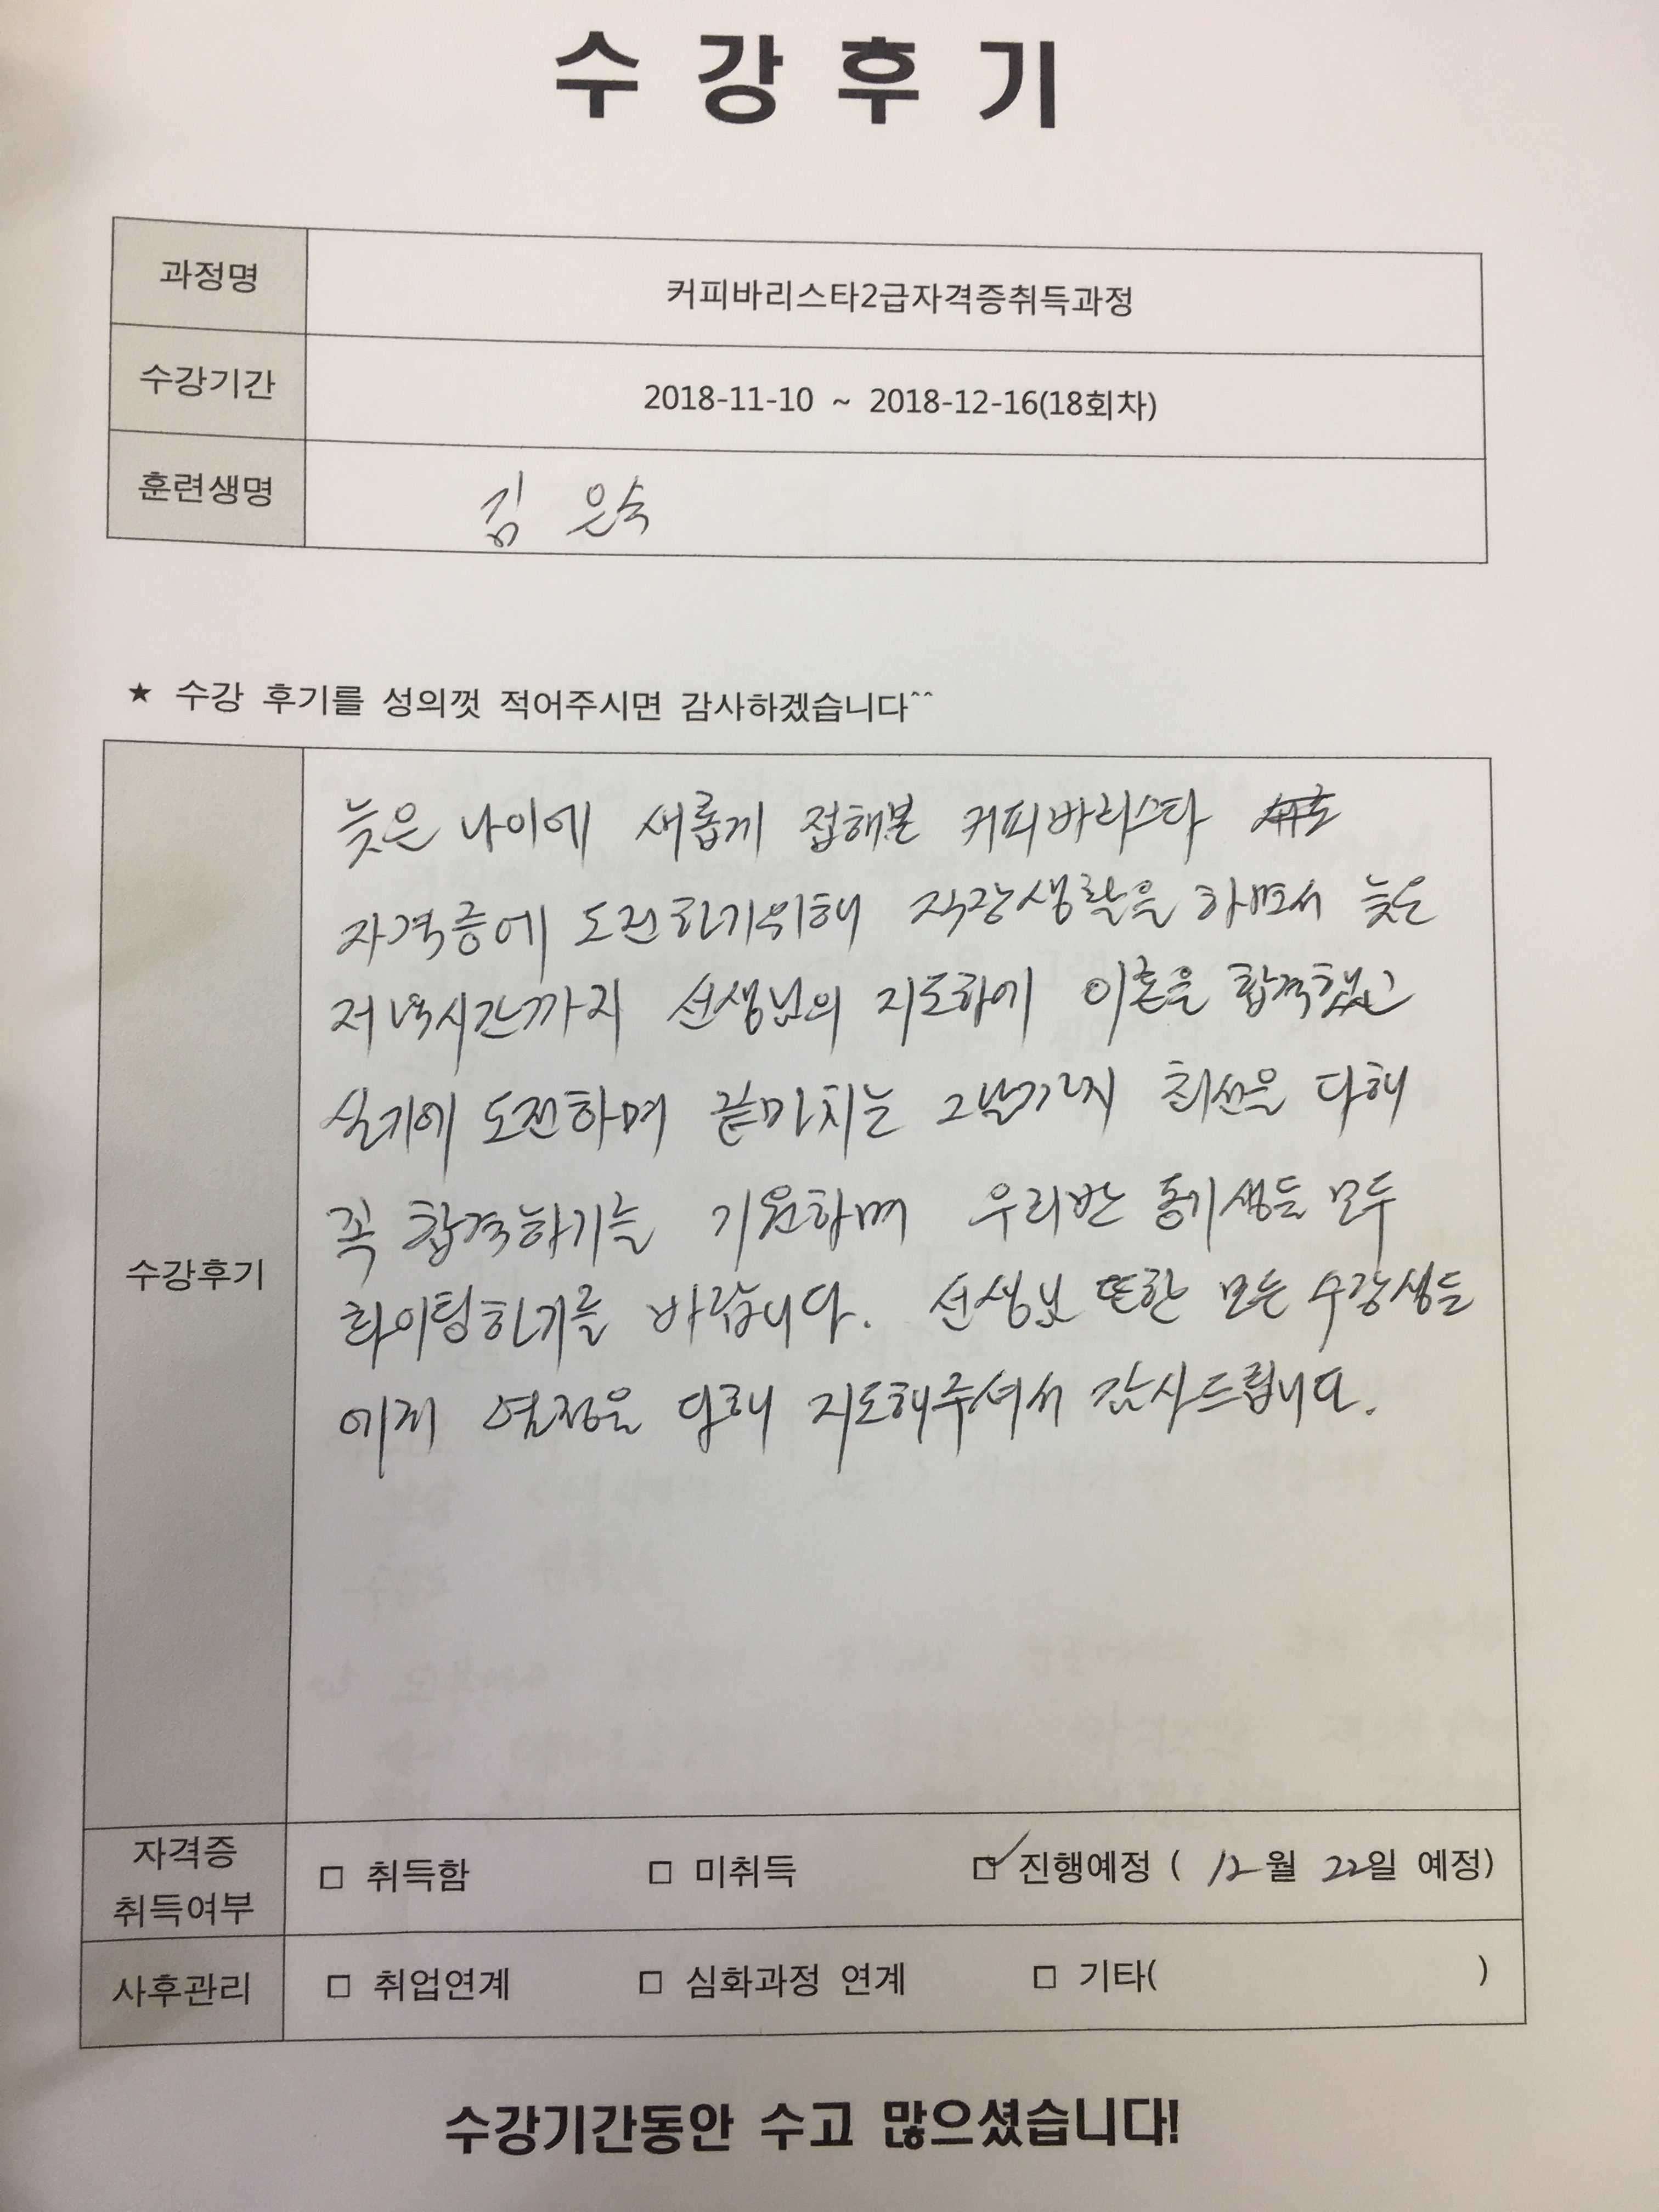 수강후기
과정명 커피바리스타2급자격증취득과정
수강기간 2018-11-10 ~ 2018-12-16(18회차)
훈련생명 김 은숙
★ 수강 후기를 성의껏 적어주시면 감사하겠습니다^^
수강후기
늦은 나이에 새롭게 접해본 커피바리스타
자격증에 도전하기위해 직장생활을 하면서 늦은
저녁시간까지 선생님의 지도하에 이론을 합격했고
실기에 도전하며 끝마치는 그날까지 최선을 다해
꼭 합격하기를 기원하며 우리반 동기생들 모두
화이팅하기를 바랍니다. 선생님 또한 모든 수강생들
에게 열정을 다해 지도해주셔서 감사드립니다.
자격증
취득여부 □ 취득함 □ 미취득 ☑ 진행예정 ( 12월 22일 예정)
사후관리 □ 취업연계 □ 심화과정 연계 □ 기타( )
수강기간동안 수고 많으셨습니다!